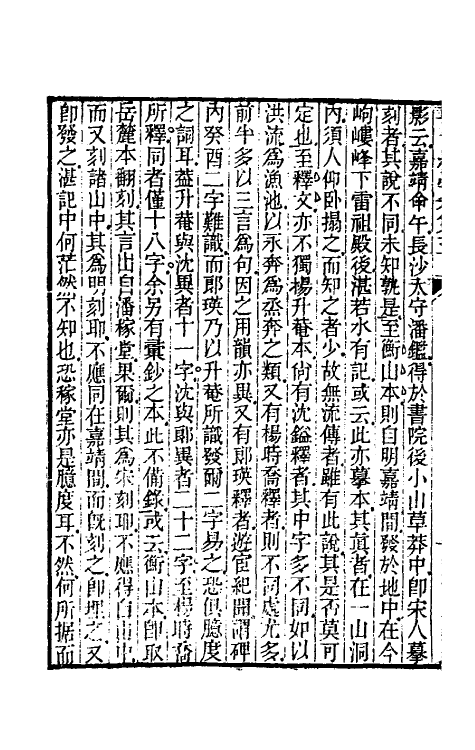 影云嘉靖命午長沙太守潘鑑得於書院後小山草莽中卽宋人摹
刻者其說不同未知孰是至衡山本則自明嘉靖間發於地中在今
岣嶁峰下雷祖殿後湛若水有記或云此亦摹本其眞者在一山洞
內須人仰卧搨之而知之者少故無流傳者雖有此說其是否莫可
定也至釋文亦不獨楊升菴本尙有沈鎰釋者其中字多不同如以
洪流爲漁池以永奔爲烝奔之類又有楊時喬釋者則不同處尤多
前半多以三言爲句因之用韻亦異又有郎瑛釋者遊宦紀聞謂碑
內癸酉二字難識而郎瑛乃以升菴所識發爾二字易之恐俱臆度
之詞耳葢升菴與沈異者十一字沈與郎異者二十二字至楊時喬
所釋同者僅十八字余另有彙鈔之本此不備錄或云衡山本卽取
岳麓本翻刻其言出自潘稼堂果爾則其爲宋刻耶不應得自
而又刻諸山中其爲明刻耶不應同在嘉靖間而旣刻之卽埋之又
卽發之湛記中何茫然不知也恐稼堂亦是臆度耳不然何所据而